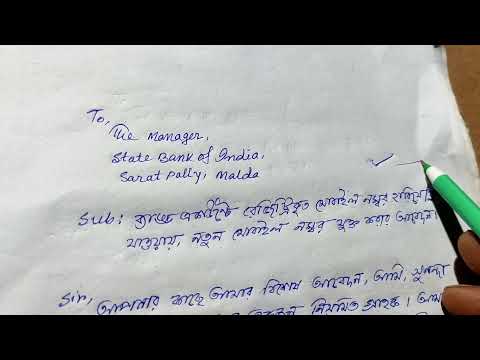 To,
The Manager,
State Bank of India,
Sarat Pally, Malda
Sub: ব্যাঙ্ক একাউন্টে রেজিস্ট্রিকৃত মোবাইল নম্বর হারিয়ে
যাওয়ায়, নতুন মোবাইল নম্বর যুক্ত করার আবেদন।
Sir,
আপনার কাছে আমার বিশেষ আবেদন, আমি, সুনন্দা
নিয়মিত গ্রাহক। আমা